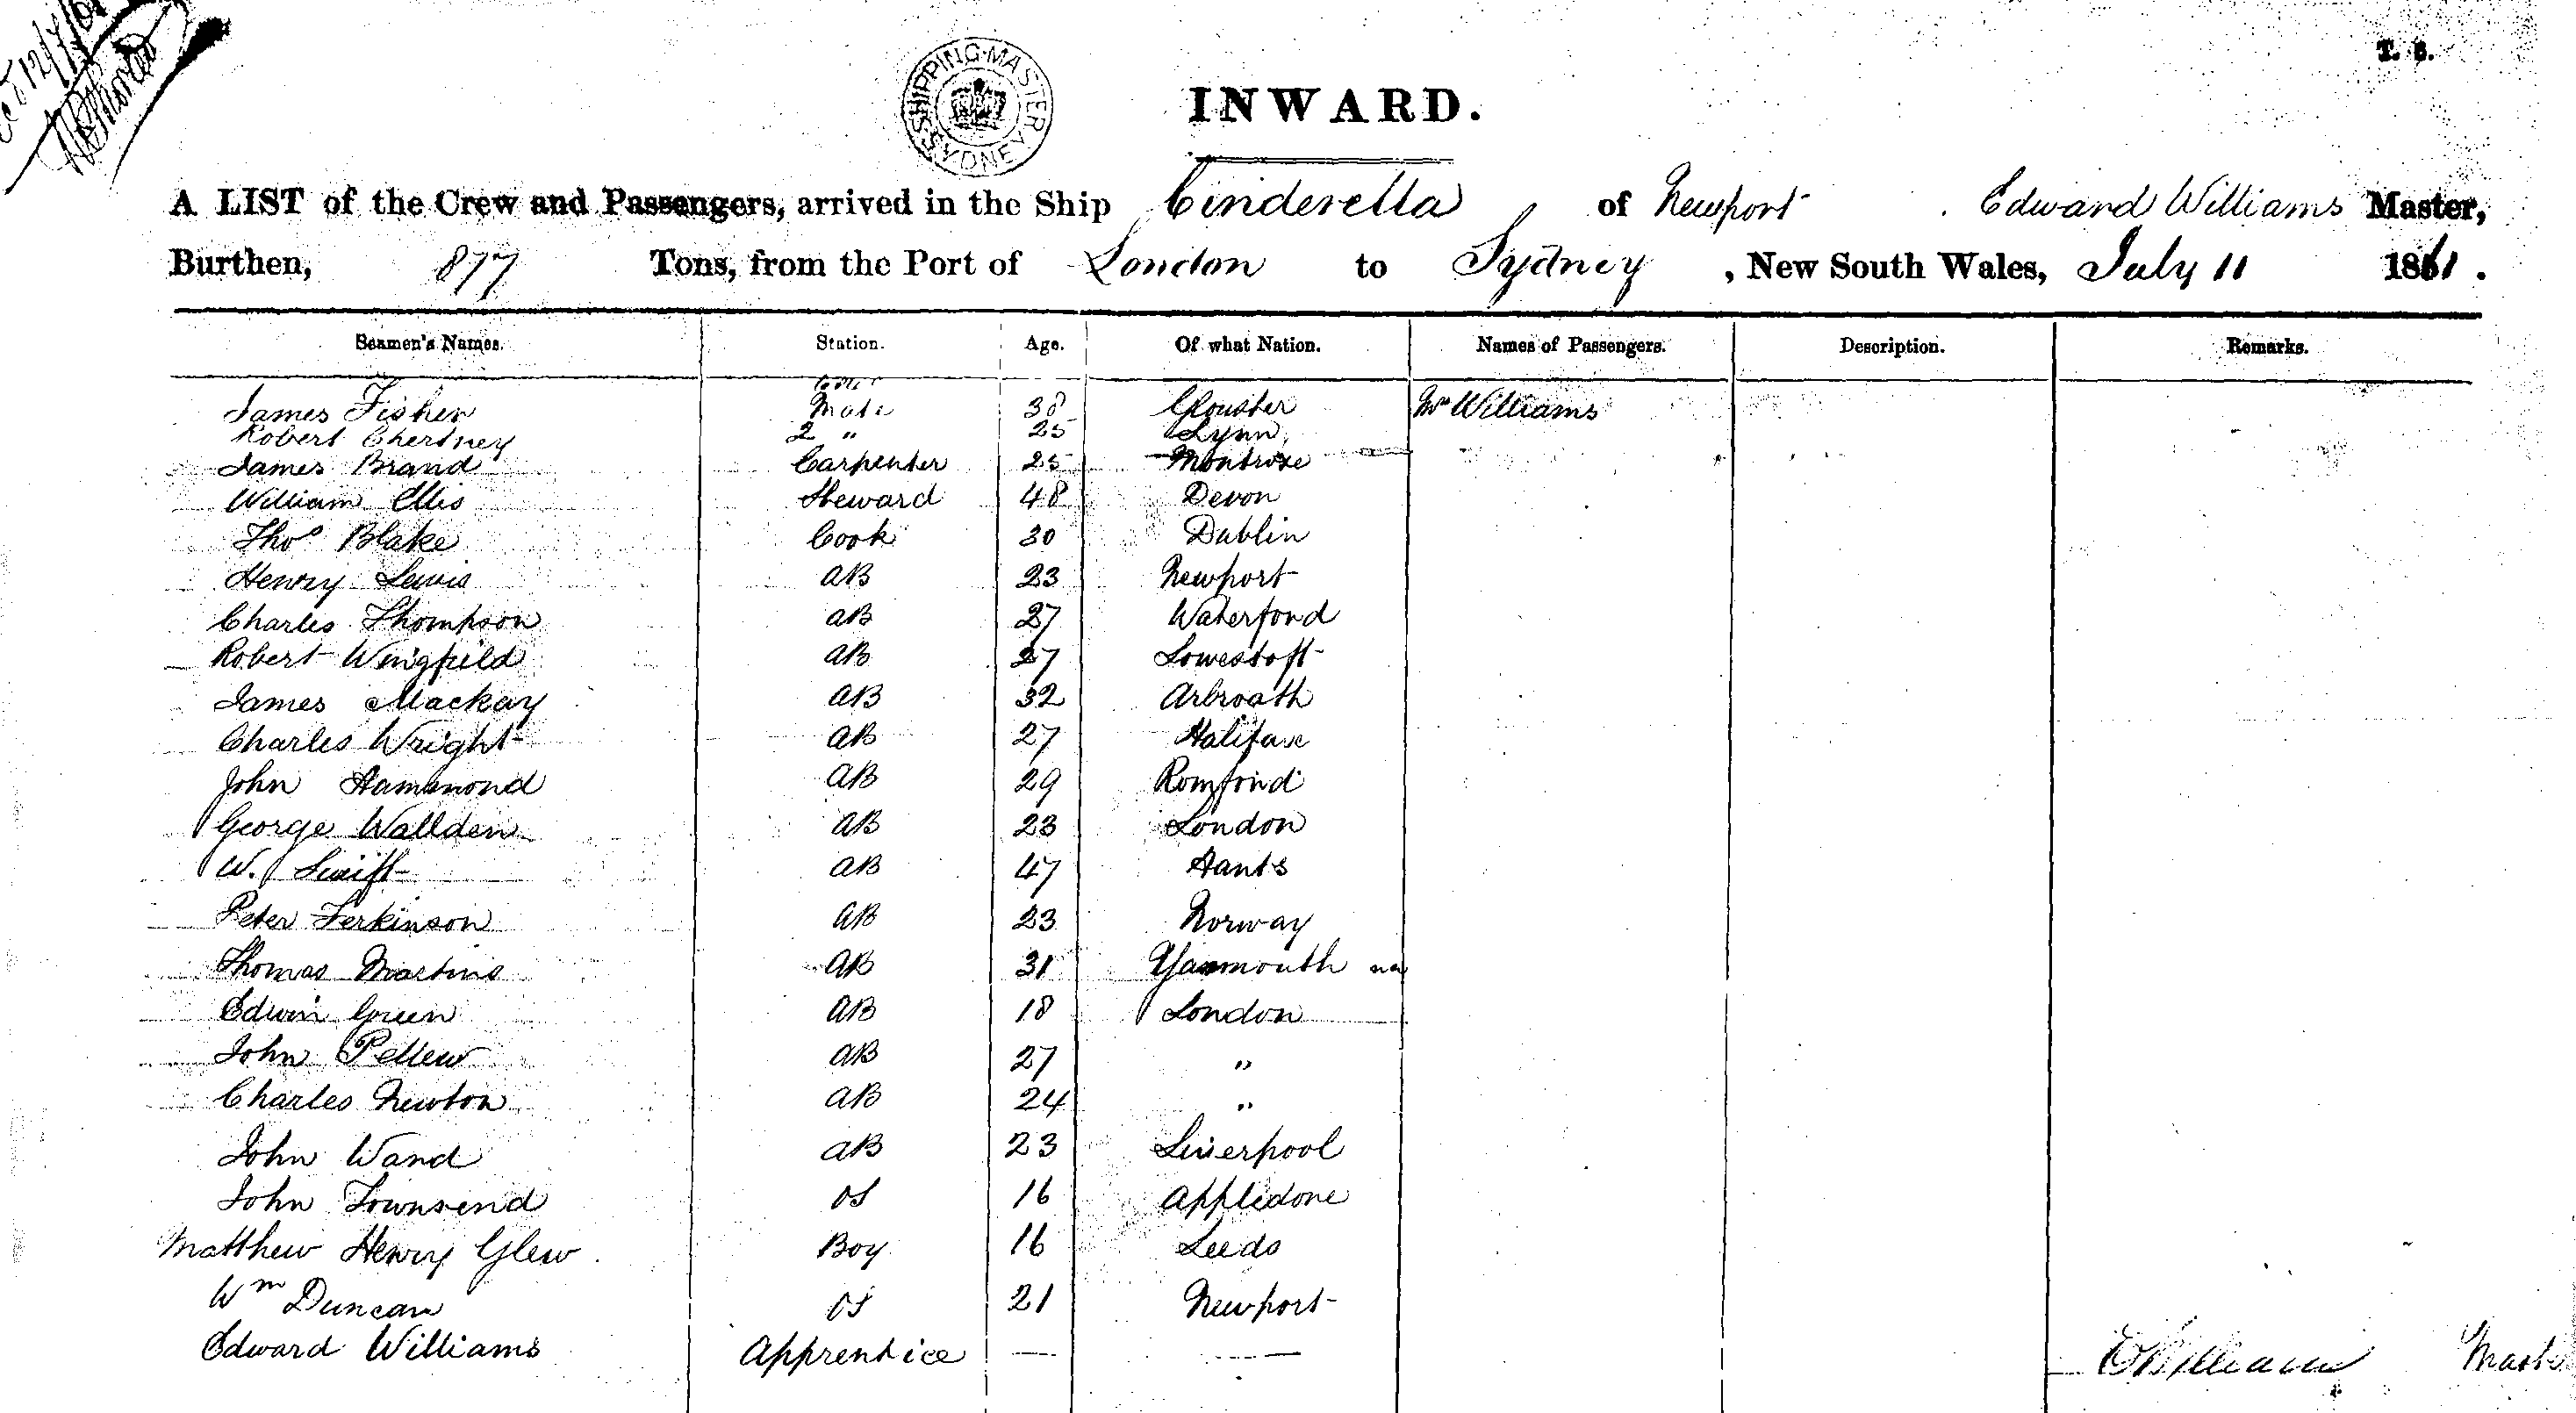 12/7/61
SHIPPING MASTER SYDNEY
T. S.
INWARD.
A LIST of the Crew and Passengers, arrived in the Ship Cinderella of Newport Edward Williams Master,
Burthen, 877 Tons, from the Port of London to Sydney, New South Wales, July 11 1861.
Seamen's Names. Station. Age. Of what Nation. Names of Passengers. Description. Remarks.
James Fisher Mate 38 Glouster Mrs Williams
Robert Chertney 2 " 25 Lynn
James Brand Carpenter 25 Montrose
William Ellis Steward 48 Devon
Thos Blake Cook 30 Dublin
Henry Lewis AB 23 Newport
Charles Thompson AB 27 Waterford
Robert Wingfield AB 27 Lowestoft
James Mackay AB 32 Arbroath
Charles Wright AB 27 Halifax
John Hammond AB 29 Romford
George Wallden AB 23 London
W. Swift AB 47 Hants
Peter Ferkinson AB 23 Norway
Thomas Martins AB 31 Yarmouth
Edwin Green AB 18 London
John Pellew AB 27 "
Charles Newton AB 24 "
John Wand AB 23 Liverpool
John Townsend OS 16 Appledore
Matthew Henry Glew Boy 16 Leeds
Wm Duncan OS 21 Newport
Edward Williams Apprentice — —
E Williams Master